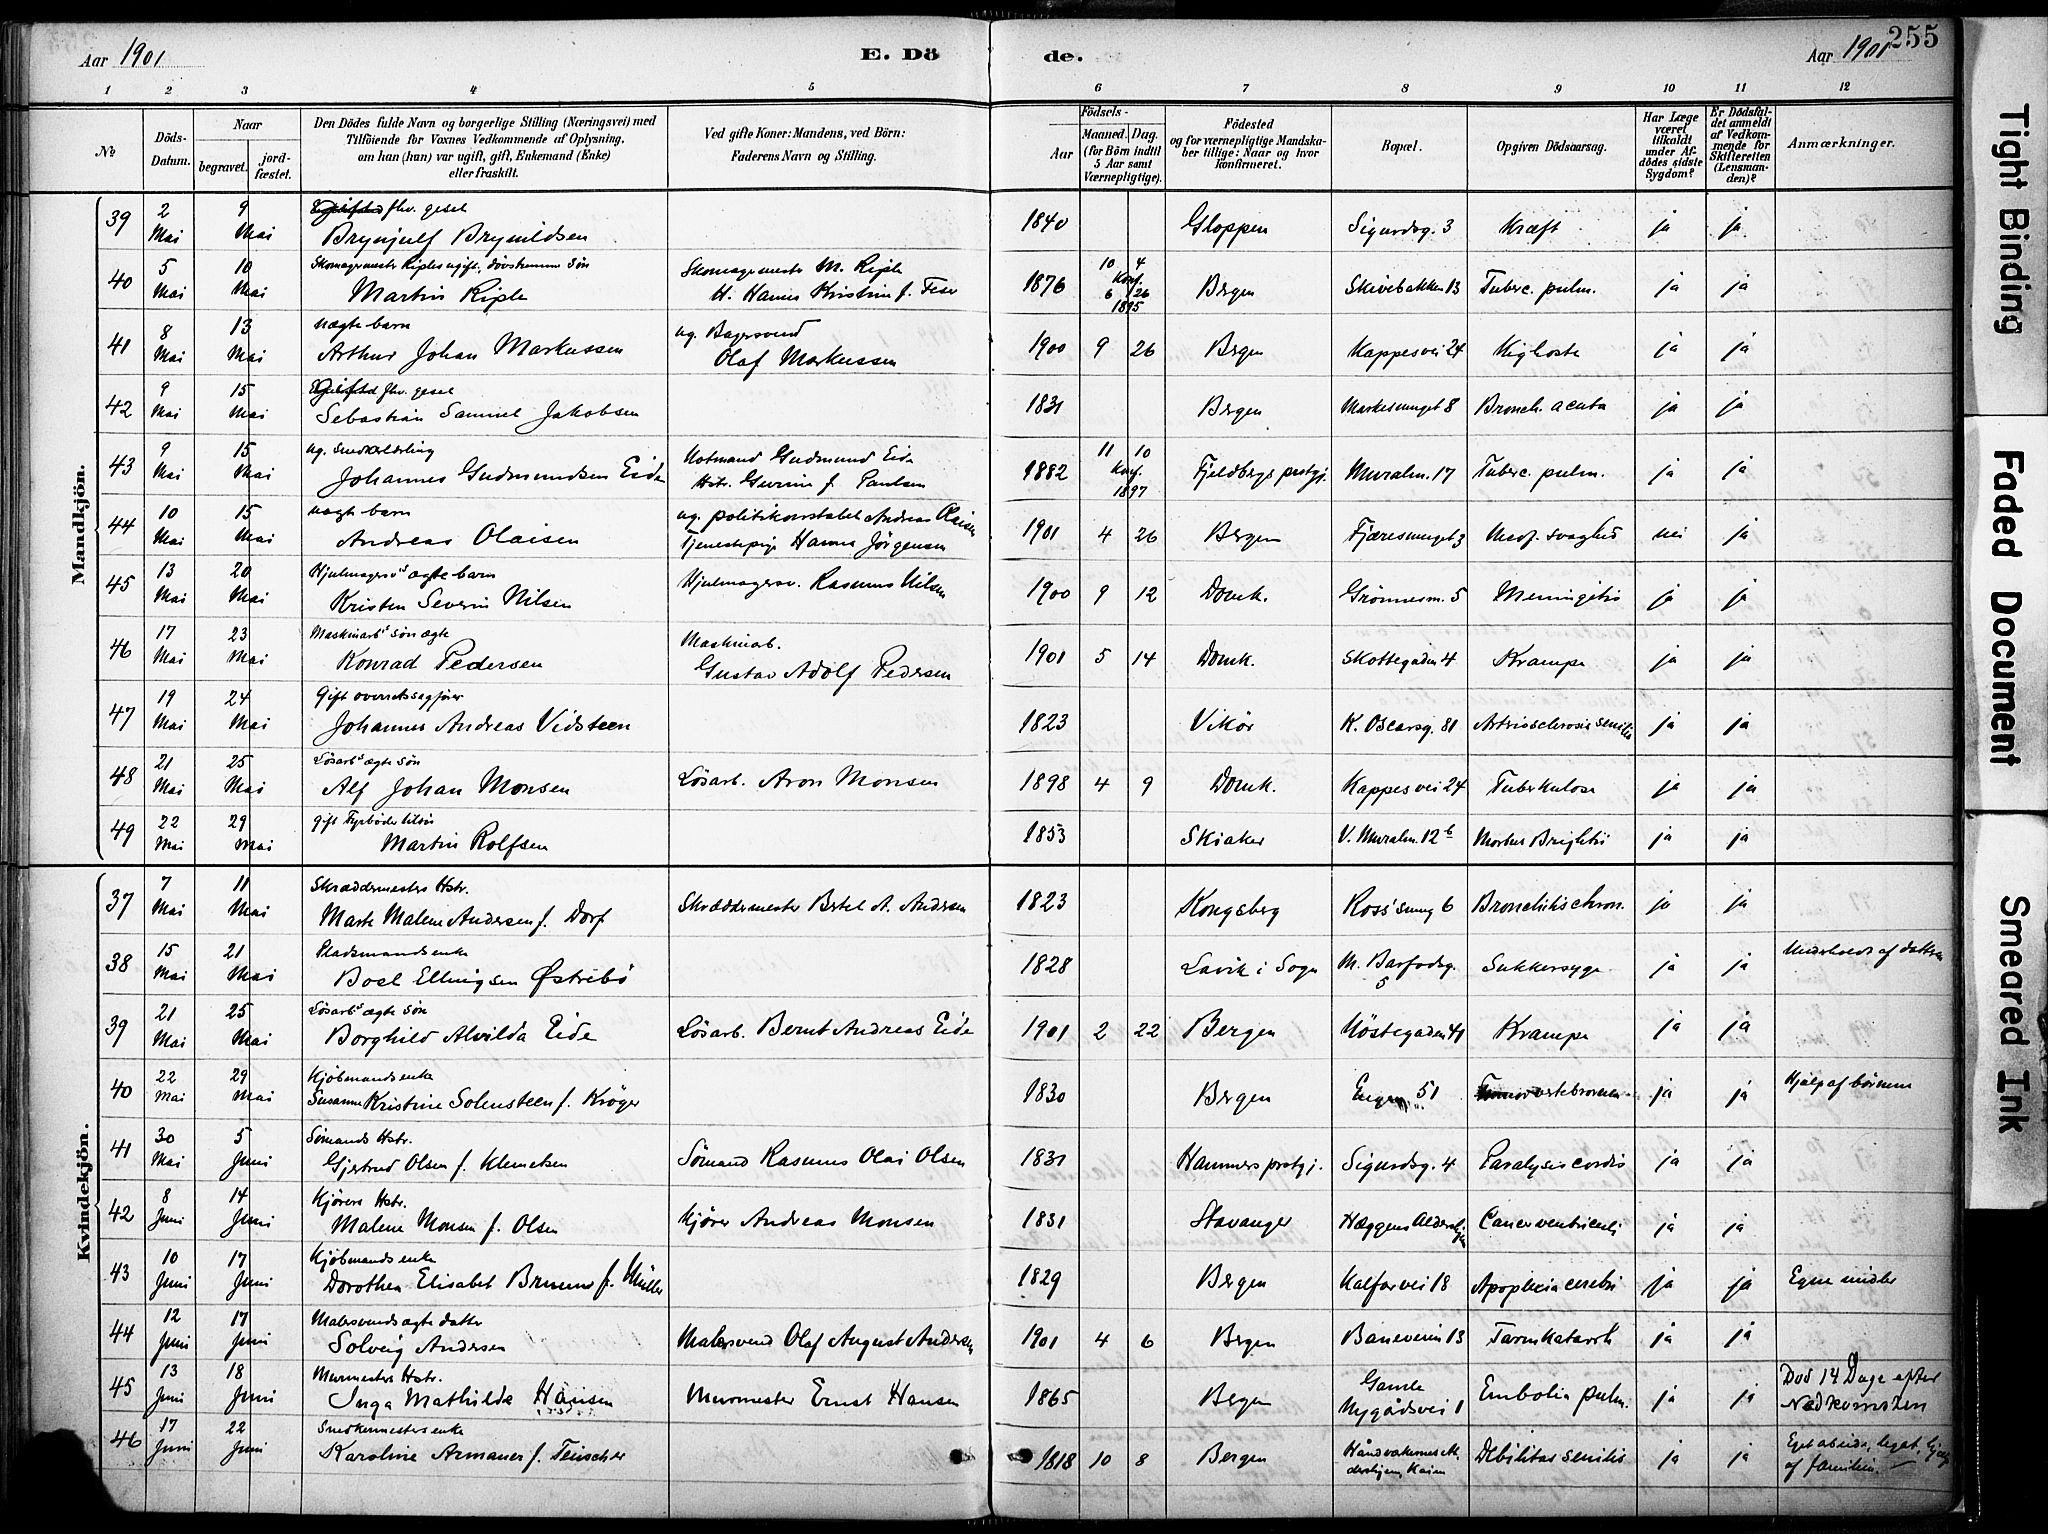 Aar 1901
E. Dö
de.
Aar 1901
255
1 2 3 4 5 6 7 8 9 10 11 12
No
Döds-Datum.
Naar
begravet.
jord-fæstet.
Den Dödes fulde Navn og borgerlige Stilling (Næringsvei) med
Tilföiende for Voxnes Vedkommende af Oplysning,
om han (hun) var ugift, gift, Enkemand (Enke)
eller fraskilt.
Ved gifte Koner: Mandens, ved Börn:
Faderens Navn og Stilling.
Födsels-
Aar
Maaned. Dag.
(for Börn indtil
5 Aar samt
Værnepligtige).
Födested
og for værnepligtige Mandska-
ber tillige: Naar og hvor
konfirmeret.
Bopæl.
Opgiven Dödsaarsag.
Har Læge
været
tilkaldt
under Af-
dödes sidste
Sygdom?
Er Dödsfal-
det anmeldt
af Vedkom-
mende for
Skifteretten
(Lensman-
den)?
Anmærkninger.
Mandkjön.
39 2 Mai 9 Mai fhv. gesel
Brynjulf Brynildsen 1840 Gloppen Sigurdsg. 3 Kræft ja ja
40 5 Mai 10 Mai Skomagermester Riples ugift, døvstumme Søn
Martin Riple Skomagermester M. Riple
H. Hanna Kristine f. 1876 10 4 Konf. 6 26 1895 Bergen Skivebakken 13 Tuberc. pulm. ja ja
41 8 Mai 13 Mai uægte barn
Arthur Johan Markussen ug. Bagersvend
Olaf Markussen 1900 9 26 Bergen Kappesvei 24 Kighoste ja ja
42 9 Mai 15 Mai fhv. gesel
Sebastian Samuel Jakobsen 1831 Bergen Markesmuget 8 Bronch. acuta ja ja
43 9 Mai 15 Mai ug. Snedkerlærling
Johannes Gudmundsen Eide Notmand Gudmund Eide
Hstr. Gurine f. Paulsen 1882 11 10 Konf. 1897 Fjeldbergs prstgj. Muralm. 17 Tuberc. pulm. ja ja
44 10 Mai 15 Mai uægte barn
Andreas Olaisen ug. politikonstabel Andreas Olaisen
Tjenestepige Hanna Jörgensen 1901 4 26 Bergen Fjæresmuget 3 Medf. svaghed nei ja
45 13 Mai 20 Mai Hjulmagersv.s ægte barn
Kristen Severin Nilsen Hjulmagersv. Rasmus Nilsen 1900 9 12 Domk. Grönnesm. 5 Meningitis ja ja
46 17 Mai 23 Mai Maskinarb.s søn ægte
Konrad Pedersen Maskinarb.
Gustav Adolf Pedersen 1901 5 14 Domk. Skottegaden 4 Krampe ja ja
47 19 Mai 24 Mai Gift overretssagfører
Johannes Andreas Vidsteen 1823 Vikör K. Oscarsg. 81 Artriosclerosis senilis ja ja
48 21 Mai 25 Mai Lösarb.s ægte søn
Alf Johan Monsen Lösarb. Aron Monsen 1898 4 9 Domk. Kappesvei 24 Tuberkulose ja ja
49 22 Mai 29 Mai gift Fyrbøder tilsøs
Martin Rolfsen 1853 Skiaker V. Muralm. 12b Morbus Brightii ja ja
Kvindekjön.
37 7 Mai 11 Mai Skræddermesters Hstr.
Marte Malene Andersen f. Dorf Skræddermester Bertel A. Andersen 1823 Kongsberg Ross'smug 6 Bronchitis chron. ja ja
38 15 Mai 21 Mai Pladsmands enke
Boel Ellingsen Østrebö 1828 Lavik i Sogn M. Barfodsg. 5 Sukkersyge ja ja Underholdt af datteren
39 21 Mai 25 Mai Lösarb.s ægte søn
Borghild Alvilda Eide Lösarb. Bernt Andreas Eide 1901 2 22 Bergen Nöstegaden 41 Krampe ja ja
40 22 Mai 29 Mai Kjøbmands enke
Susanne Kristine Solensteen f. Kröger 1830 Bergen Engen 51 ja ja Hjælp af börnene
41 30 Mai 5 Juni Sömands Hstr.
Gjertrud Olsen f. Klemetsen Sömand Rasmus Olai Olsen 1831 Hammers prstgj. Sigurdsg. 4 Paralysis cordis ja ja
42 8 Juni 14 Juni Kjörers Hstr.
Malene Monsen f. Olsen Kjörer Andreas Monsen 1831 Stavanger Hæggens Aldershjem Cancer ventriculi ja ja
43 10 Juni 17 Juni Kjøbmands enke
Dorothea Elisabet Bruun f. Müller 1829 Bergen Kalfarvei 18 Apoplexia cerebri ja ja Egne midler
44 12 Juni 17 Juni Malersvends ægte datter
Solveig Andersen Malersvend Olaf August Andersen 1901 4 6 Bergen Baneveien 13 Tarmkatarrh ja ja
45 13 Juni 18 Juni Murmesters Hstr.
Inga Mathilde Hansen Murmester Ernst Hansen 1865 Bergen Gamle Nygådsvei 1 Embolia pulm. ja ja Död 14 Dage efter
Nedkomsten
46 17 Juni 22 Juni Snedkermesters enke
Karoline Armauer f. Teuscher 1818 10 8 Bergen Håndværkernes Al-
dershjem, Kaien Debilitas senilis ja ja Eget arbeide, legat, hjælp
af familien.
Tight Binding
Faded Document
Smeared Ink